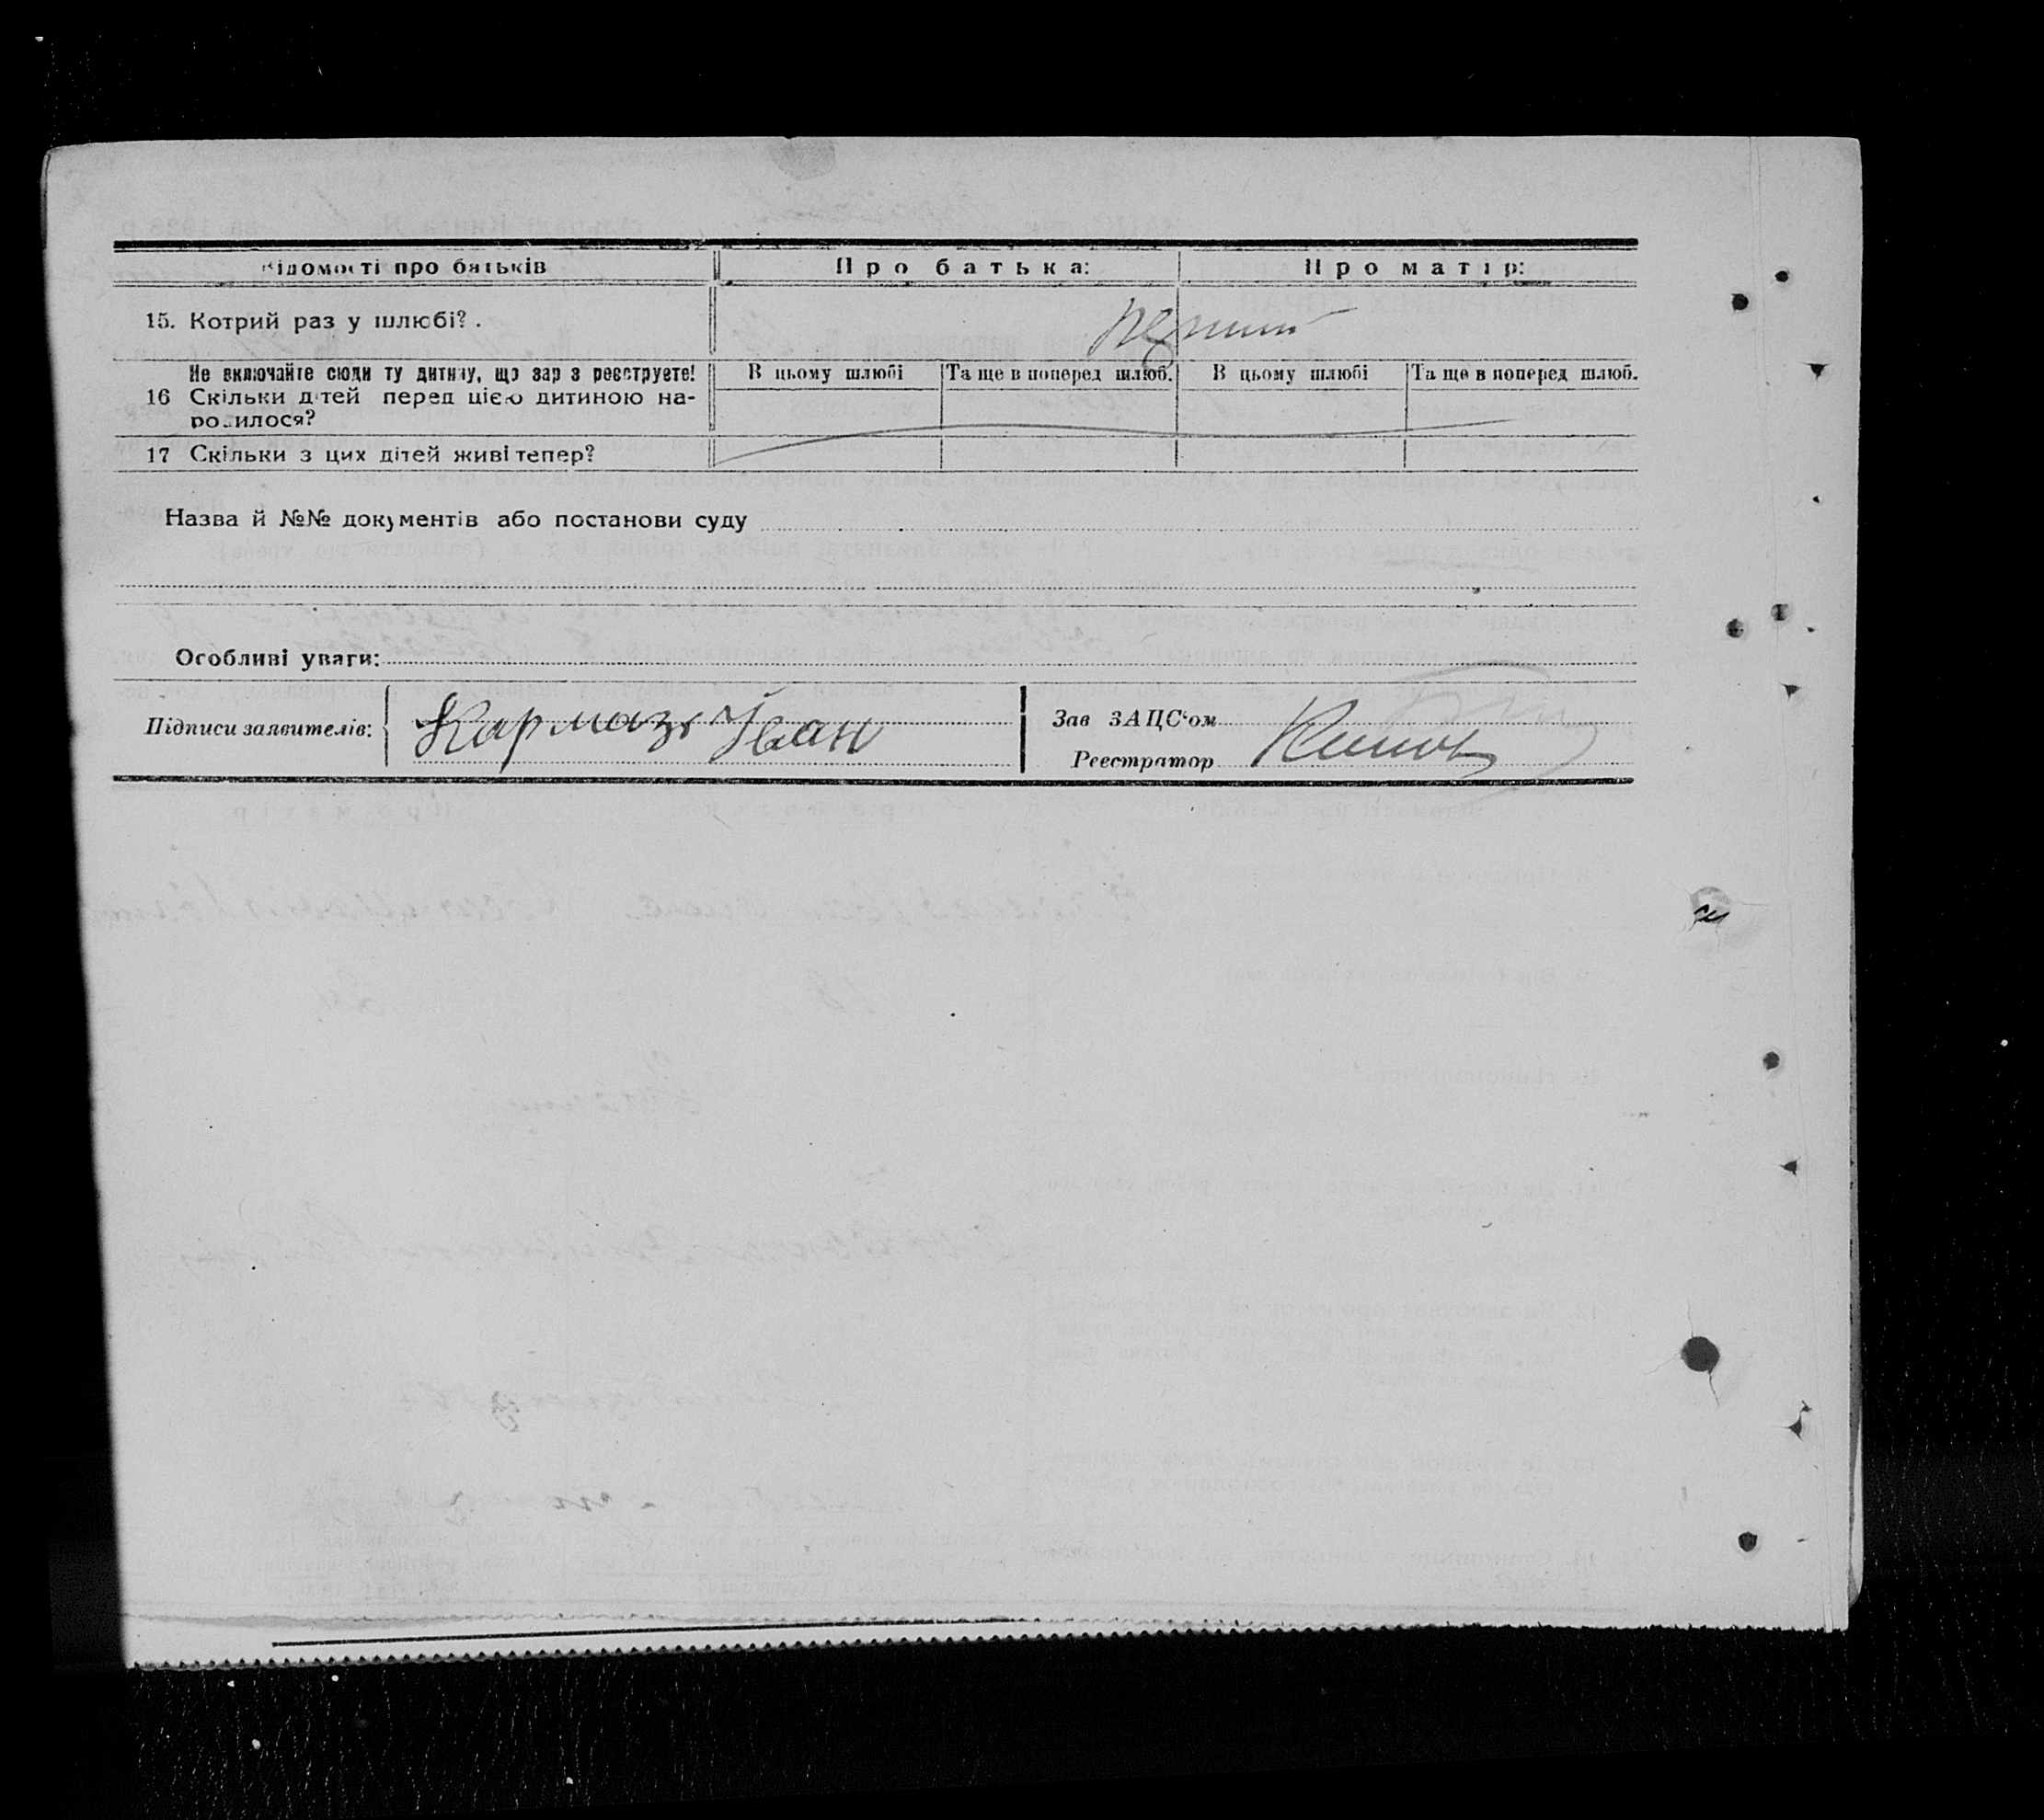 Відомості про батьків Про батька: Про матір:
15. Котрий раз у шлюбі?.
Не включайте сюди ту дитину, що зараз реєструєте! В цьому шлюбі Та ще в поперед шлюб. В цьому шлюбі Та ще в поперед шлюб.
16 Скільки дітей перед цією дитиною на-
родилося?
17 Скільки з цих дітей живі тепер?
Назва й №№ документів або постанови суду
Особливі уваги:
Підписи заявителів: Кармазь Іван
Зав ЗАЦС'ом
Реєстратор